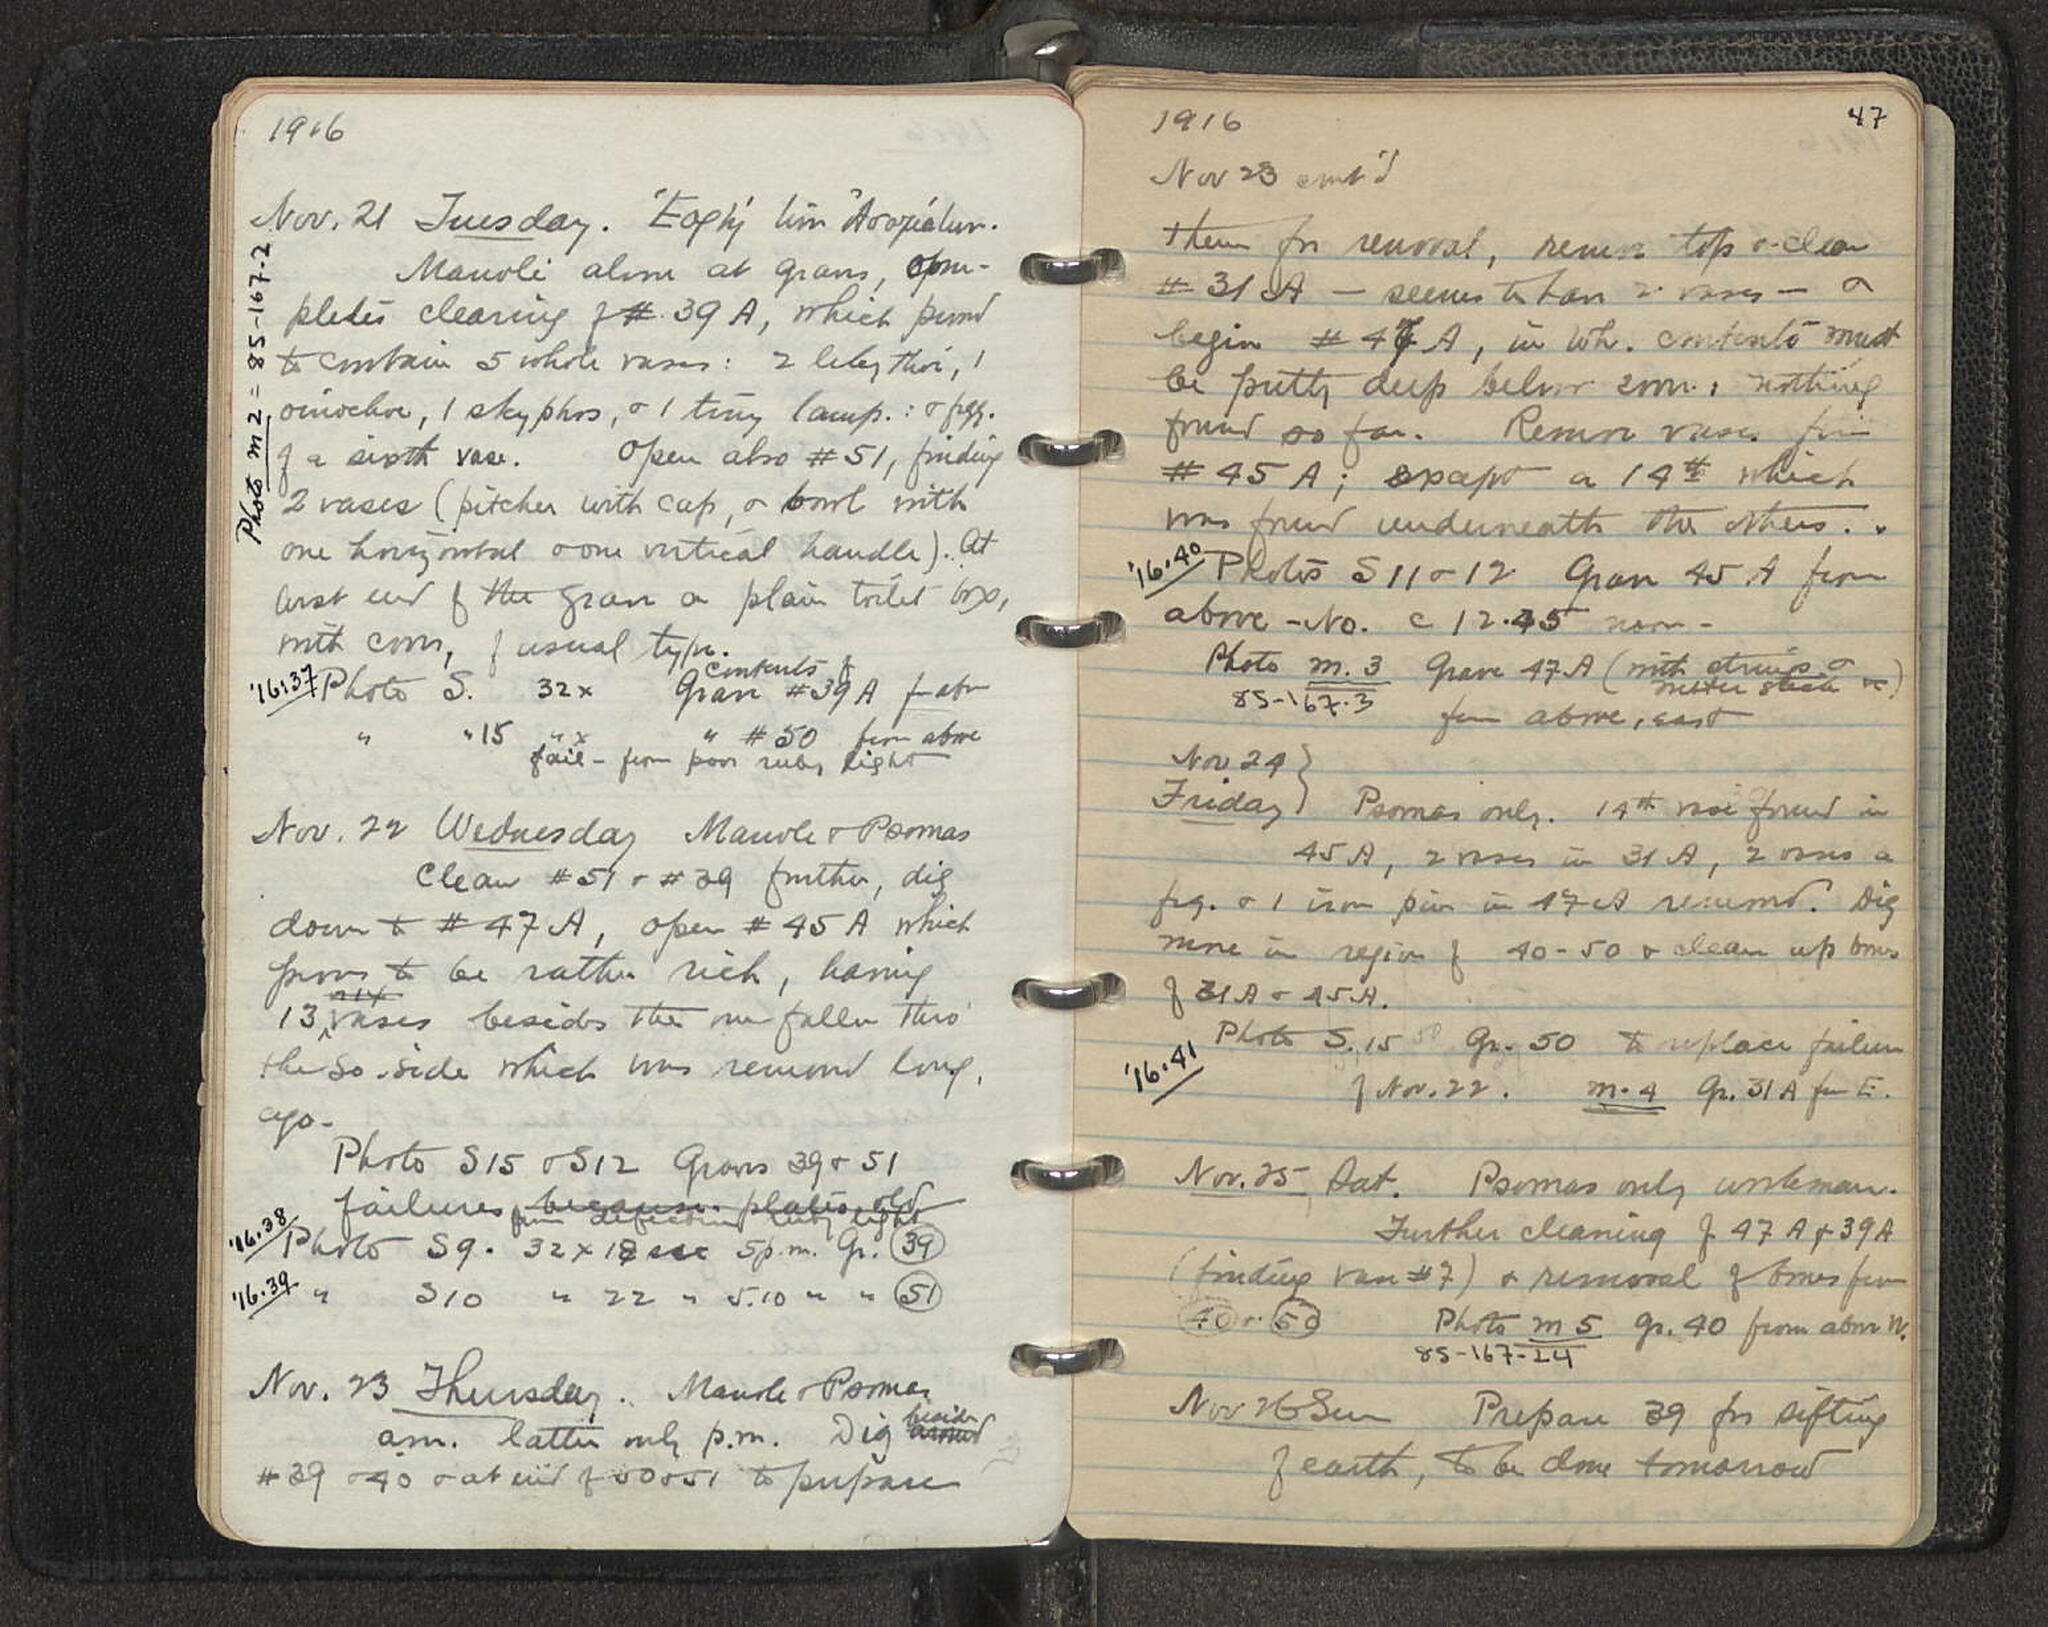 1916
Nov. 21 Tuesday. Ἑορτὴ τῶν
Manoli alone at grave, com-
pletes clearing of # 39 A, which proved
to contain 5 whole vases: 2 lekythoi, 1
oinochoe, 1 skyphos, & 1 tiny lamp.: & frgg.
of a sixth vase. Open also # 51, finding
2 vases (pitcher with cap, & bowl with
one horizontal & one vertical handle). At
west end of the grave a plain toilet box,
with cover, of usual type.
Photo m2 = 85-167-2
contents of
'16:37 Photo S. 32x Grave # 39 A f. abv
" " 15 " x " # 50 from above
fail - from poor ruby light
Nov. 22 Wednesday Manole & Psomas
Clean # 51 & # 39 further, dig
down to # 47 A, open # 45 A which
proves to be rather rich, having
or 14
13 vases besides the one fallen thro'
the So. side which was removed long,
ago.
Photo S15 & S12 Graves 39 & 51
failures because plates old
from defective ruby light
'16.38 Photo S9. 32x 18 sec 5 p.m. Gr. 39
'16.39 " S10 " 22 " 5.10 " " 51
Nov. 23 Thursday. Manole & Psomas
beside
a.m. latter only p.m. Dig around
# 39 & 40 & at end of 50 & 51 to prepare
1916
47
Nov 23 cont'd
them for removal, remove top & clean
# 31 A – seems to have 2 vases – &
begin # 47 A, in wh. contents must
be pretty deep below, nothing
found so far. Remove vases from
# 45 A; except a 14th which
was found underneath the others.
'16.40 Photos S 11 & 12 Grave 45 A from
above - No. c 12.45 noon -
Photo m. 3 Grave 47 A (with strings &
meter stick)
85-167.3
from above, east
Nov 24
Friday Psomas only. 14th vase found in
45 A, 2 vases in 31 A, 2 vases a
frg. & 1 iron pin in 47 A removed. Dig
more in region of 40-50 & clean up bones
of 31 A & 45 A.
Photo S. 15 Gr. 50 to replace failure
'16.41
of Nov. 22. m. 4 Gr. 31 A from E.
Nov. 25, Sat. Psomas only workman.
Further cleaning of 47 A & 39 A
(finding vase # 7) & removal of bones from
40 & 50 Photo m 5 Gr. 40 from above W.
85-167-24
Nov 26 Sun Prepare 39 for sifting
of earth, to be done tomorrow